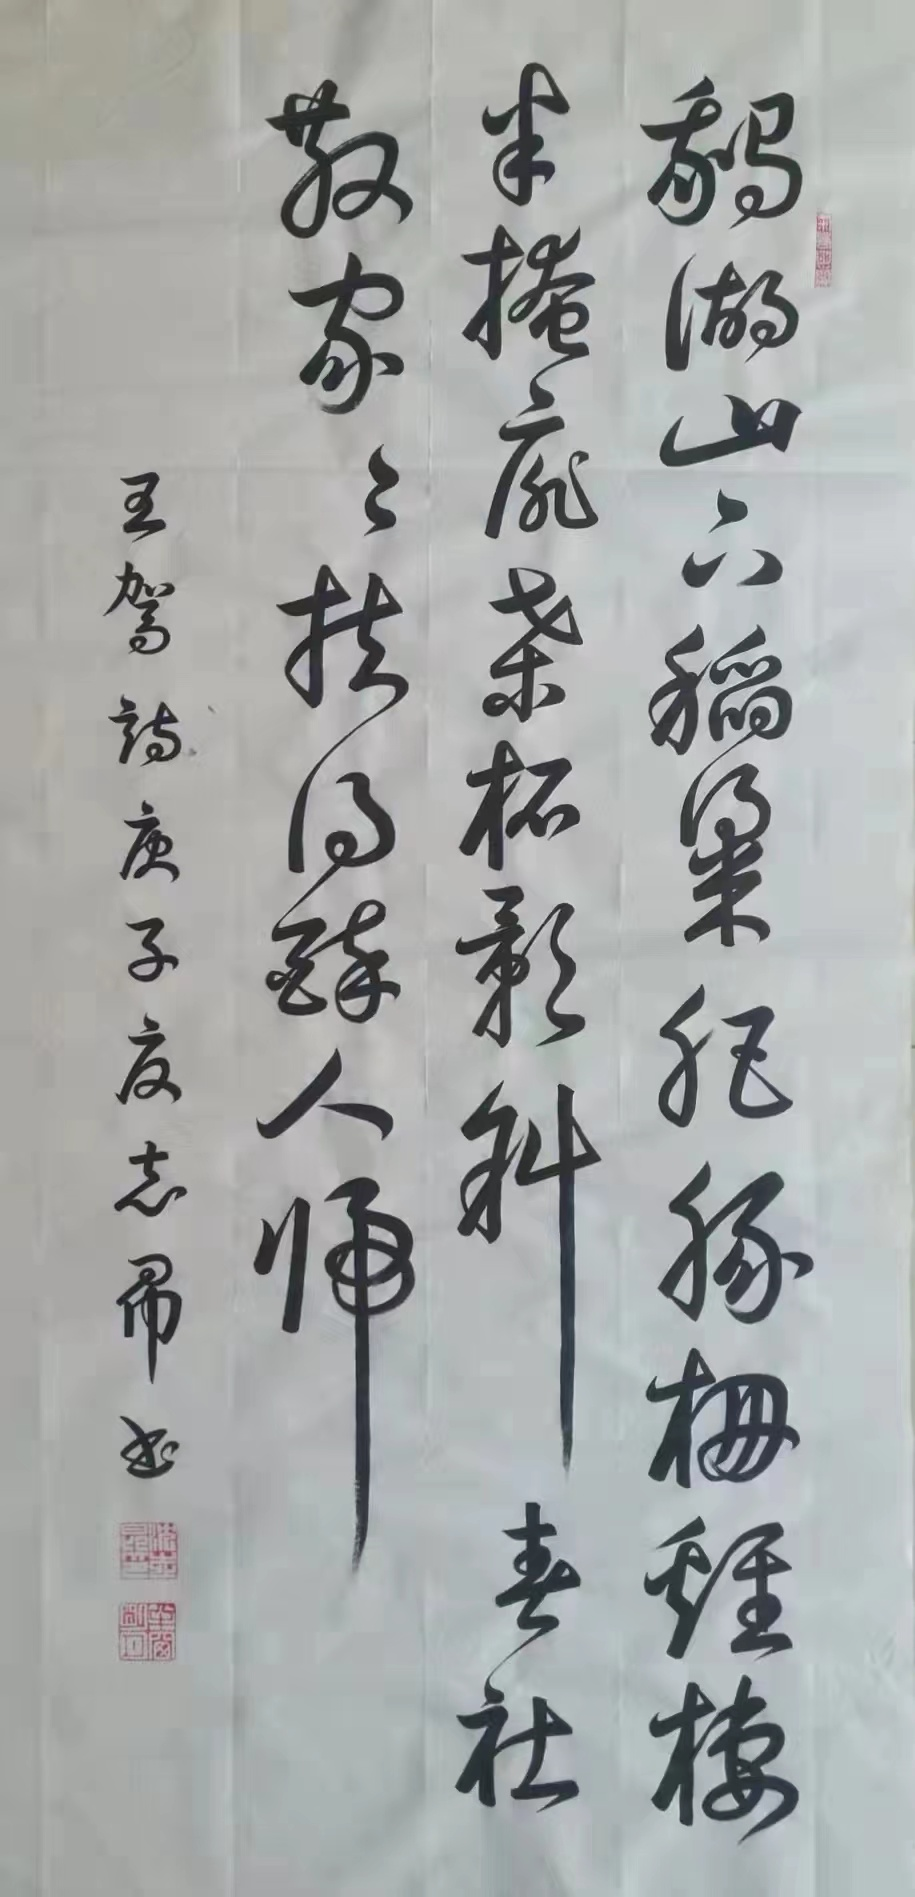 鹅湖山下稻粱肥豚栅鸡栖
半掩扉桑柘影斜春社
散家々扶得醉人归
王驾诗庚子夏志昂书